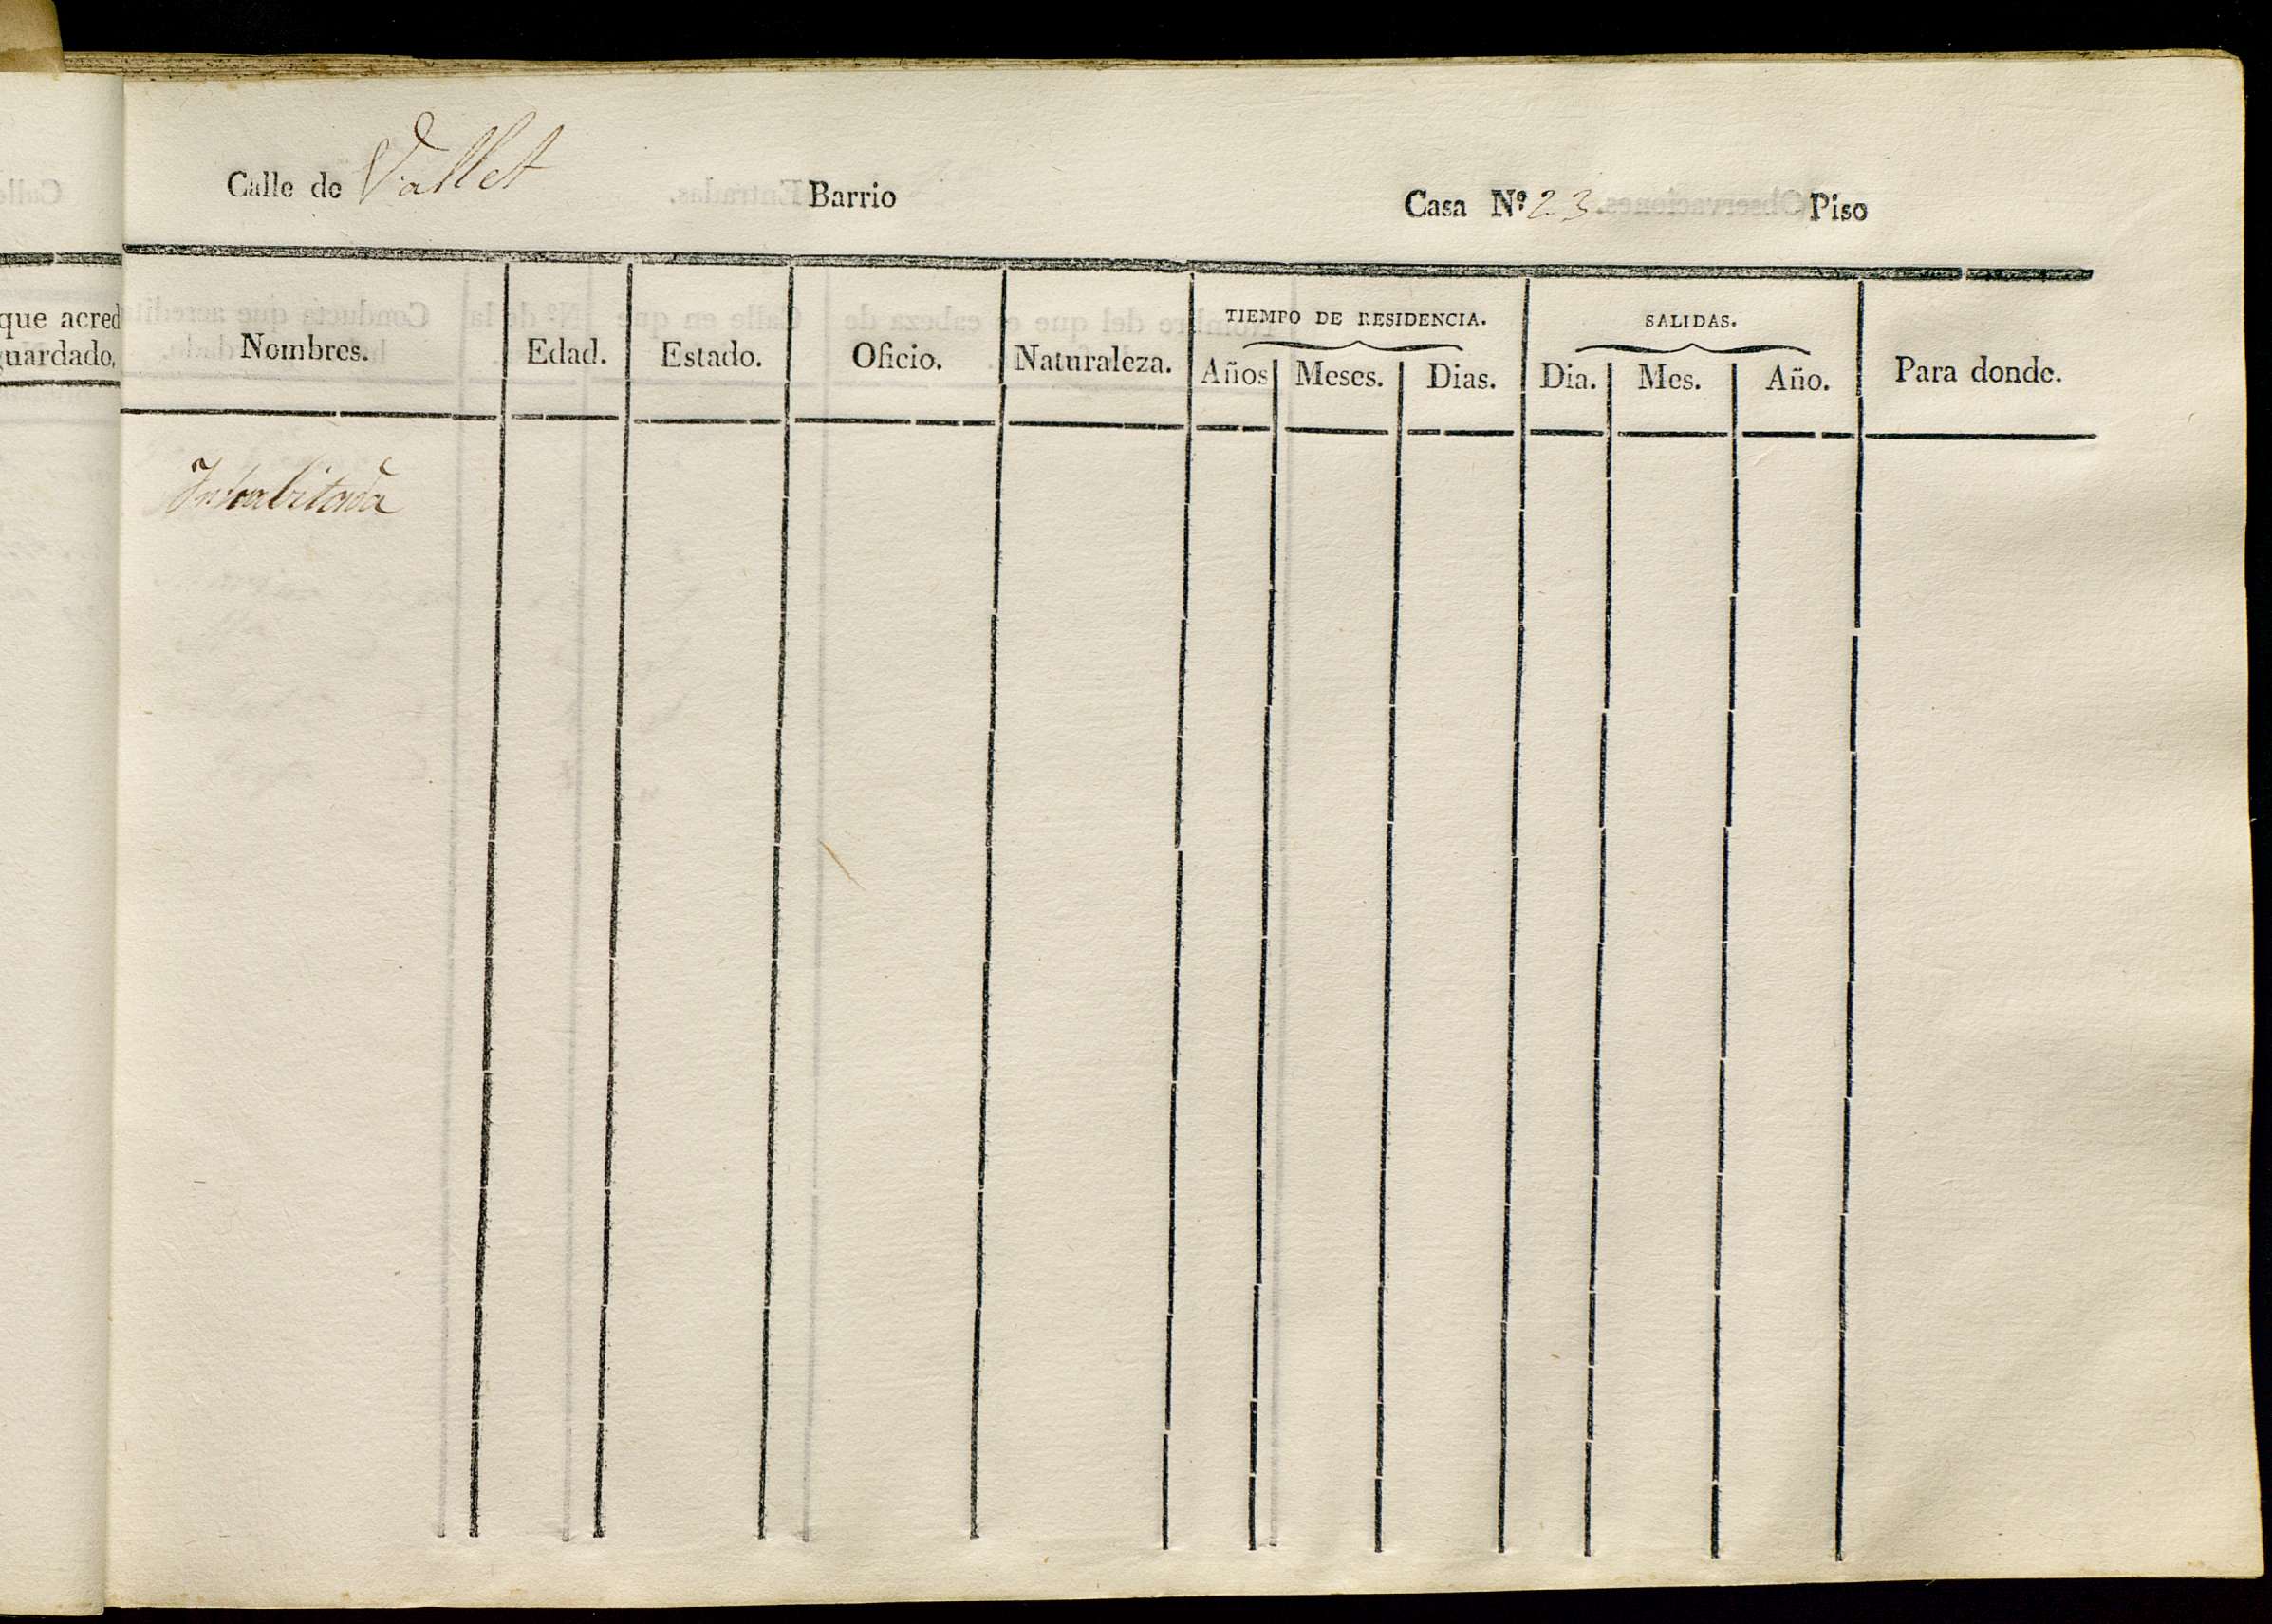 Calle de Vallet Barrio Casa Nº 23. Piso
que acred
guardado,
Nombres. Edad. Estado. Oficio. Naturaleza. TIEMPO DE RESIDENCIA. SALIDAS. Para donde.
Años Meses. Dias. Dia. Mes. Año.
Inhabitada